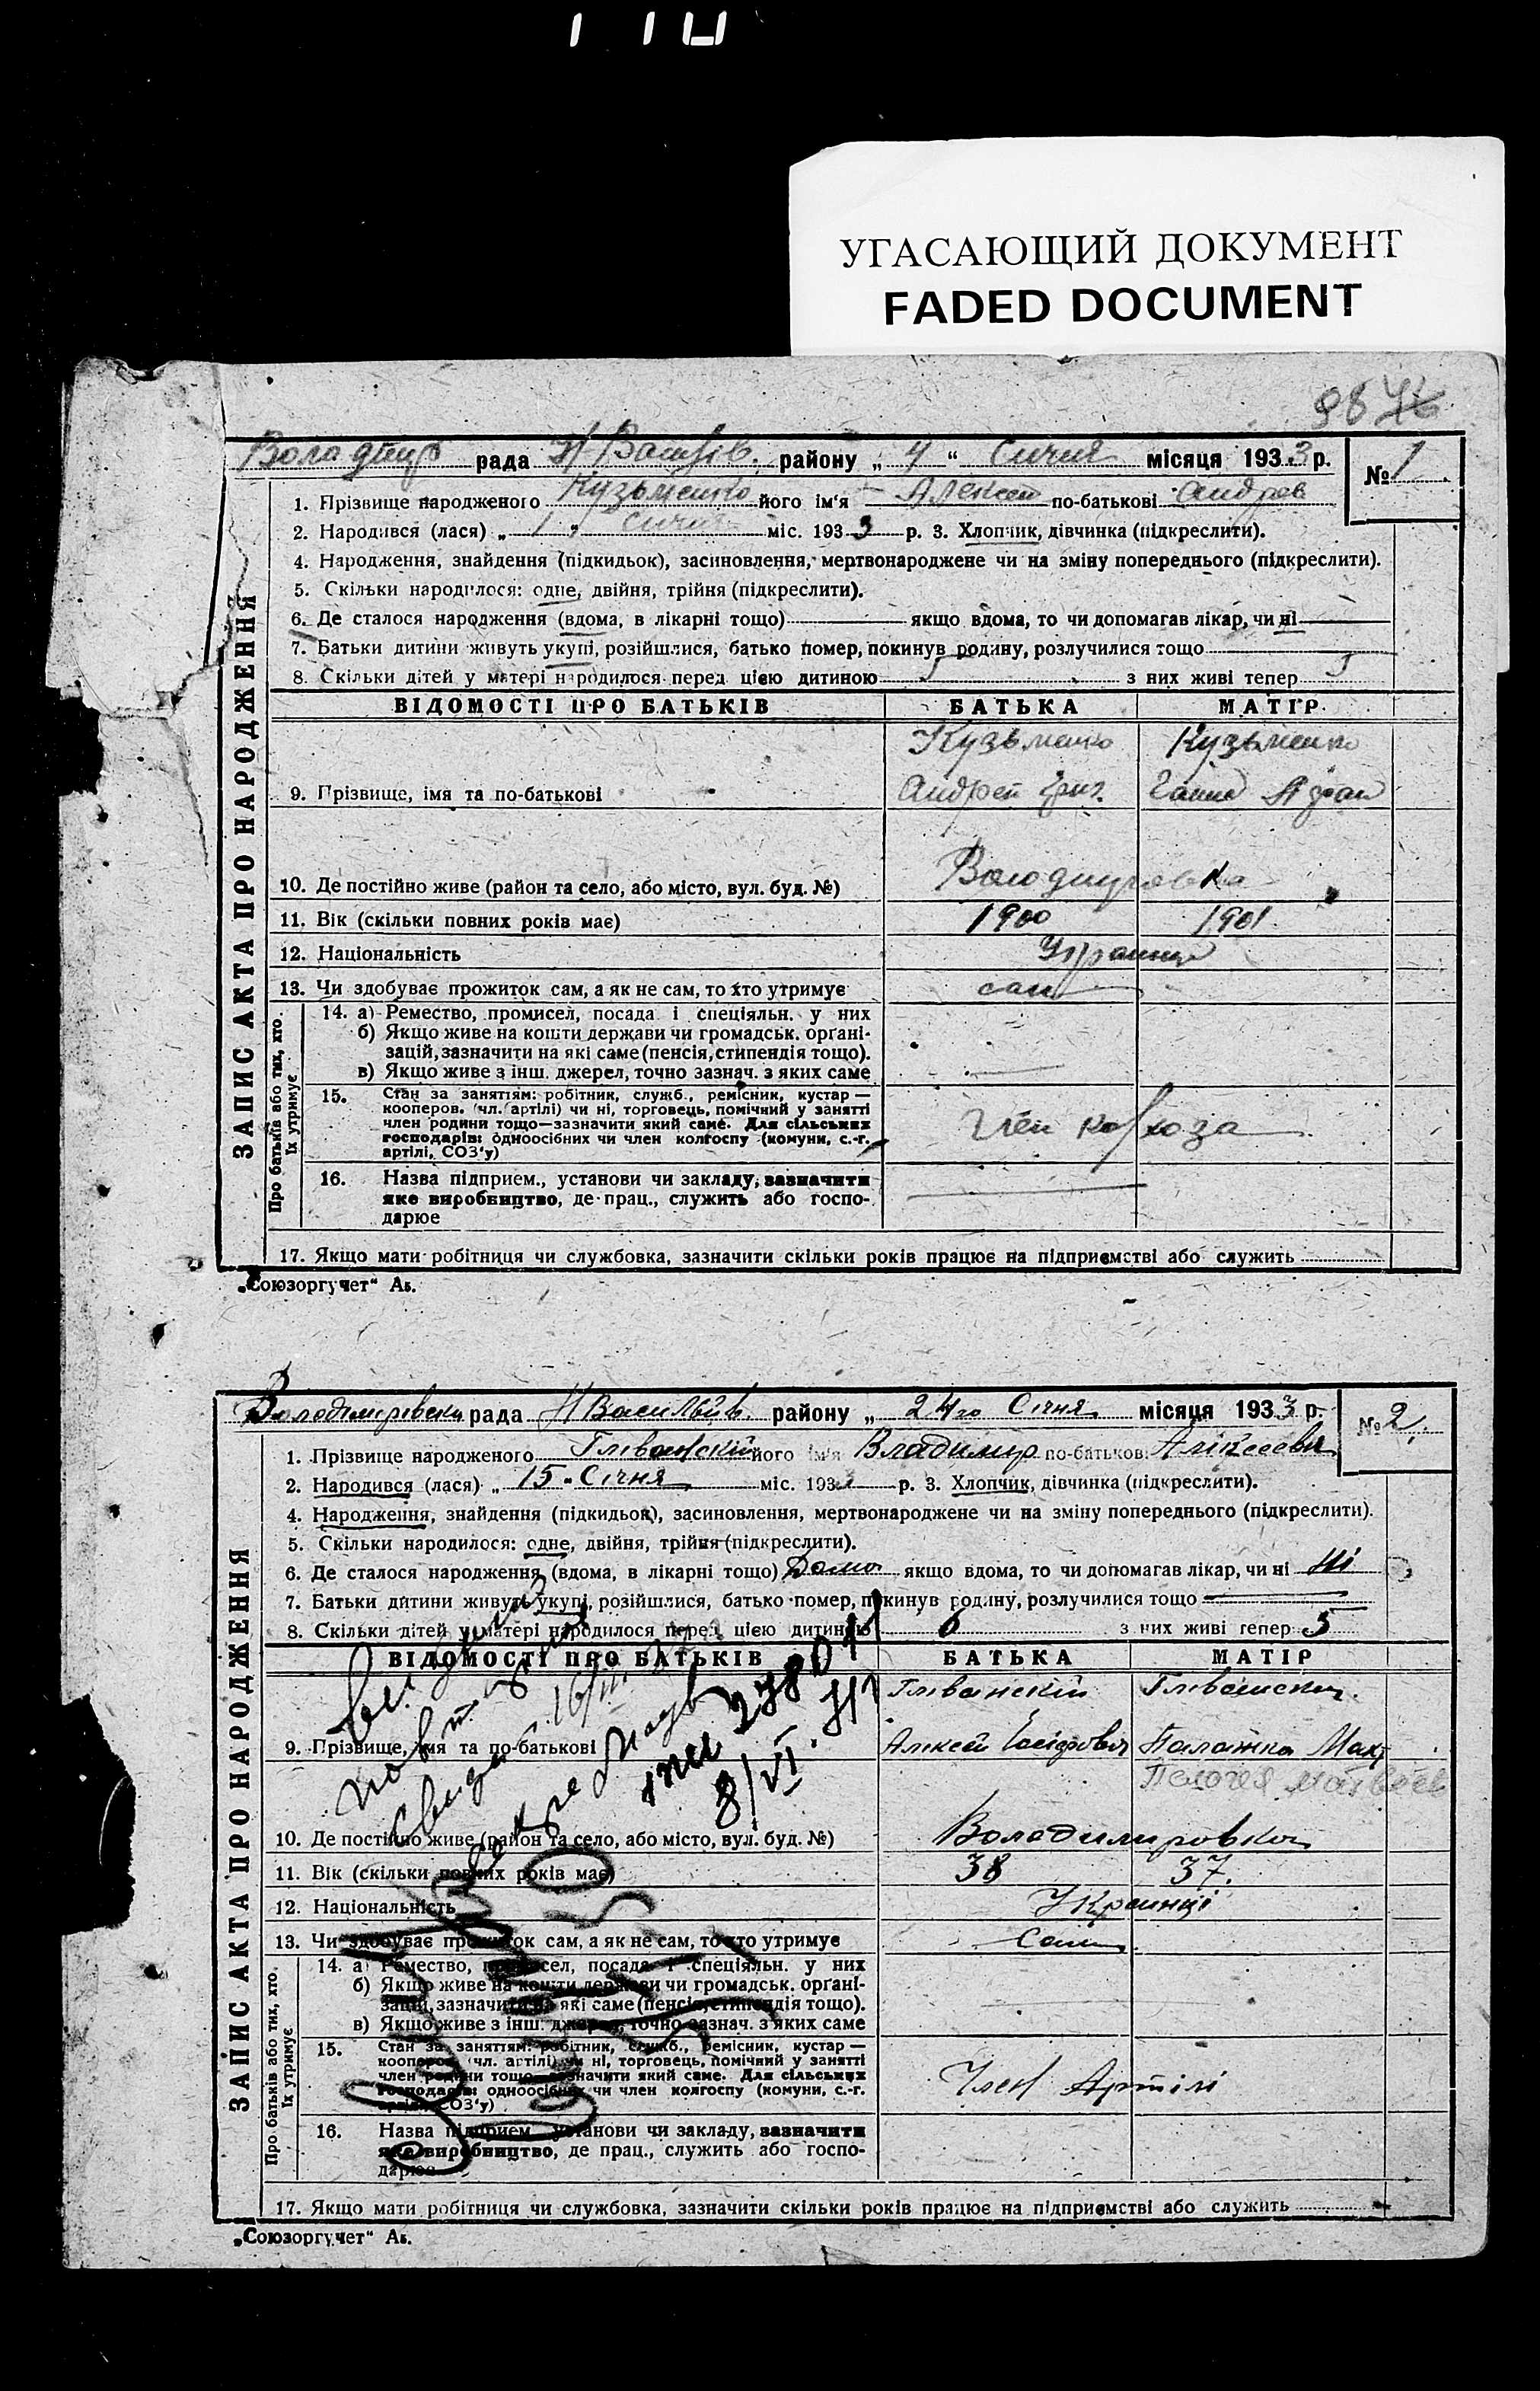 УГАСАЮЩИЙ ДОКУМЕНТ
FADED DOCUMENT
ЗАПИС АКТА ПРО НАРОДЖЕННЯ
рада Н Васил'їв. району „ 4 “ Сичня місяця 1933 р. № 1
1. Прізвище народженого Кузьменко його ім'я Алексей по-батькові Андрев
2. Народився (лася) „ 1 „ Сичня міс. 1933 р. 3. Хлопчик, дівчинка (підкреслити).
4. Народження, знайдення (підкидьок), засиновлення, мертвонароджене чи на зміну попереднього (підкреслити).
5. Скільки народилося: одне, двійня, трійня (підкреслити).
6. Де сталося народження (вдома, в лікарні тощо) якщо вдома, то чи допомагав лікар, чи ні
7. Батьки дитини живуть укупі, розійшлися, батько помер, покинув родину, розлучилися тощо
8. Скільки дітей у матері народилося перед цією дитиною 5 з них живі тепер 5
ВІДОМОСТІ ПРО БАТЬКІВ БАТЬКА МАТІР
Кузьменко Кузьменко
9. Прізвище, імя та по-батькові Андрей Григ. Ганна
10. Де постійно живе (район та село, або місто, вул. буд. №) Володимировка
11. Вік (скільки повних років має) 1900 1901
12. Національність Украинци
13. Чи здобуває прожиток сам, а як не сам, то хто утримує сам
Про батьків або тих, хто їх утримує
14. а) Ремество, промисел, посада і спеціяльн. у них
б) Якщо живе на кошти держави чи громадськ. орґані-
зацій, зазначити на які саме (пенсія, стипендія тощо).
в) Якщо живе з інш. джерел, точно зазнач. з яких саме
15. Стан за заняттям: робітник, служб., ремісник, кустар —
кооперов. (чл. артілі) чи ні, торговець, помічний у занятті
член родини тощо—зазначити який саме. Для сільських
господарів: одноосібних чи член колгоспу (комуни, с.-г.
артілі, СОЗ'у) Член колхоза
16. Назва підприєм., установи чи закладу, зазначити
яке виробництво, де прац., служить або госпо-
дарює
17. Якщо мати робітниця чи службовка, зазначити скільки років працює на підприємстві або служить
„Союзоргучет“ Аб.
ЗАПИС АКТА ПРО НАРОДЖЕННЯ
Володимерівська рада Н Васильїв. району „ 24го Січня місяця 1933 р. № 2.
1. Прізвище народженого Гліванскій його ім'я Владимир по-батькові Алікссевич
2. Народився (лася) „ 15 „ Січня міс. 1933 р. 3. Хлопчик, дівчинка (підкреслити).
4. Народження, знайдення (підкидьок), засиновлення, мертвонароджене чи на зміну попереднього (підкреслити).
5. Скільки народилося: одне, двійня, трійня (підкреслити).
6. Де сталося народження (вдома, в лікарні тощо) Дома якщо вдома, то чи допомагав лікар, чи ні Ні
7. Батьки дитини живуть укупі, розійшлися, батько помер, покинув родину, розлучилися тощо
8. Скільки дітей у матері народилося перед цією дитиною 6 з них живі тепер 5
ВІДОМОСТІ ПРО БАТЬКІВ БАТЬКА МАТІР
Гліванскій Гліванска
9. Прізвище, імя та по-батькові Алксей Палажка
Пелагея Матвеев
10. Де постійно живе (район та село, або місто, вул. буд. №) Володимировка
11. Вік (скільки повних років має) 38 37.
12. Національність Украинці
13. Чи здобуває прожиток сам, а як не сам, то хто утримує Сам
Про батьків або тих, хто їх утримує
14. а) Ремество, промисел, посада і спеціяльн. у них
б) Якщо живе на кошти держави чи громадськ. орґані-
зацій, зазначити на які саме (пенсія, стипендія тощо).
в) Якщо живе з інш. джерел, точно зазнач. з яких саме
15. Стан за заняттям: робітник, служб., ремісник, кустар —
кооперов. (чл. артілі) чи ні, торговець, помічний у занятті
член родини тощо—зазначити який саме. Для сільських
господарів: одноосібних чи член колгоспу (комуни, с.-г.
артілі, СОЗ'у) Член Артілі
16. Назва підприєм., установи чи закладу, зазначити
яке виробництво, де прац., служить або госпо-
дарює
17. Якщо мати робітниця чи службовка, зазначити скільки років працює на підприємстві або служить
„Союзоргучет“ Аб.